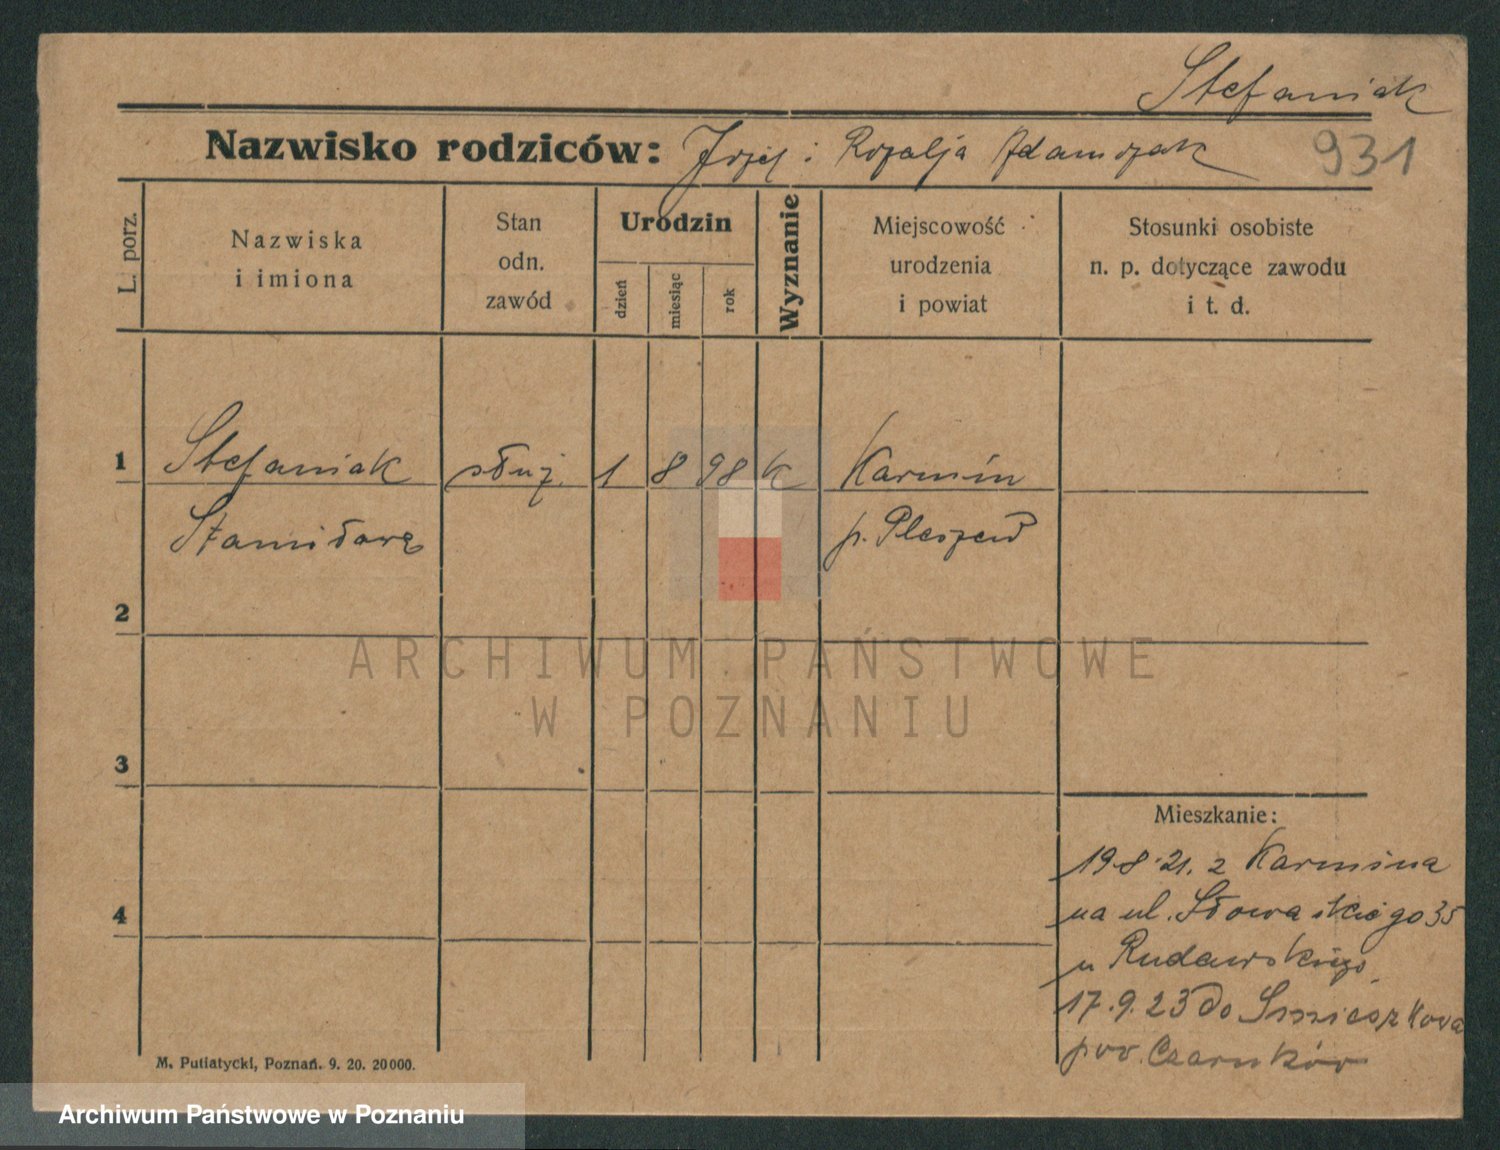 Stefaniak
Nazwisko rodziców: Józef i Rozalja Adamczak 931
L. porz.
Nazwiska
i imiona
Stan
odn.
zawód
Urodzin
dzień
miesiąc
rok
Wyznanie
Miejscowość
urodzenia
i powiat
Stosunki osobiste
n. p. dotyczące zawodu
i t. d.
1 Stefaniak służ. 1 8 98 k Karmin
Stanisława p. Pleszew
2
ARCHIWUM PAŃSTWOWE
W POZNANIU
3
Mieszkanie:
19.8.21. z Karmina
4
na ul. Słowackiego 35
u Rudawskiego
17.9.23 do Smieszkowa
pow. Czarnków
M. Putiatycki, Poznań. 9. 20. 20000.
Archiwum Państwowe w Poznaniu